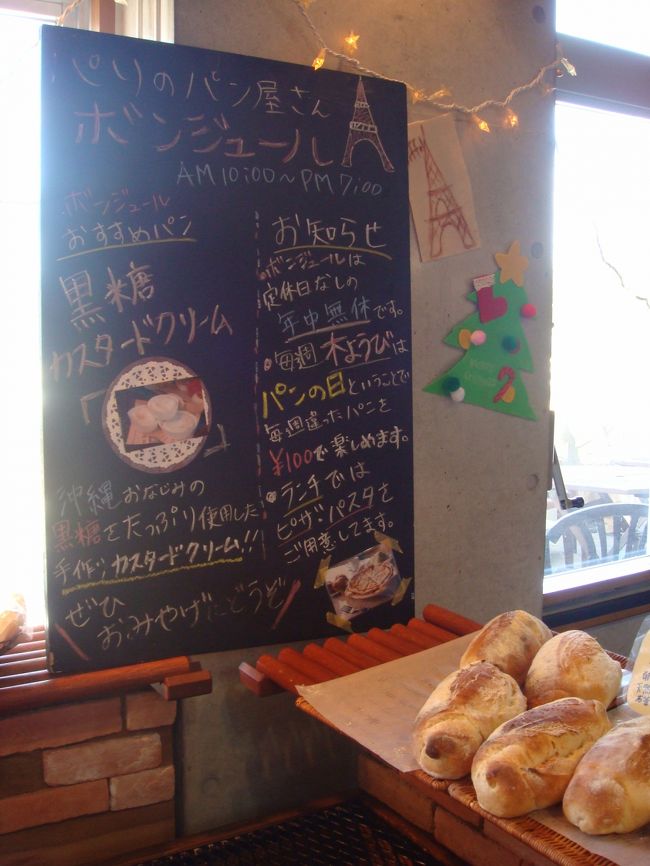 パリのパン屋さん
ボンジュール
AM10:00〜PM7:00
ボンジュール
おすすめパン
黒糖
カスタードクリーム
「
」
沖縄おなじみの
黒糖をたっぷり使用した
手作りカスタードクリーム!!
ぜひ
おみやげにどうぞ
お知らせ
ボンジュールは
定休日なしの
年中無休です。
毎週木ようびは
パンの日ということで
毎週違ったパンを
¥100で楽しめます。
ランチでは
ピザ・パスタを
ご用意してます。
Merry
Christmas